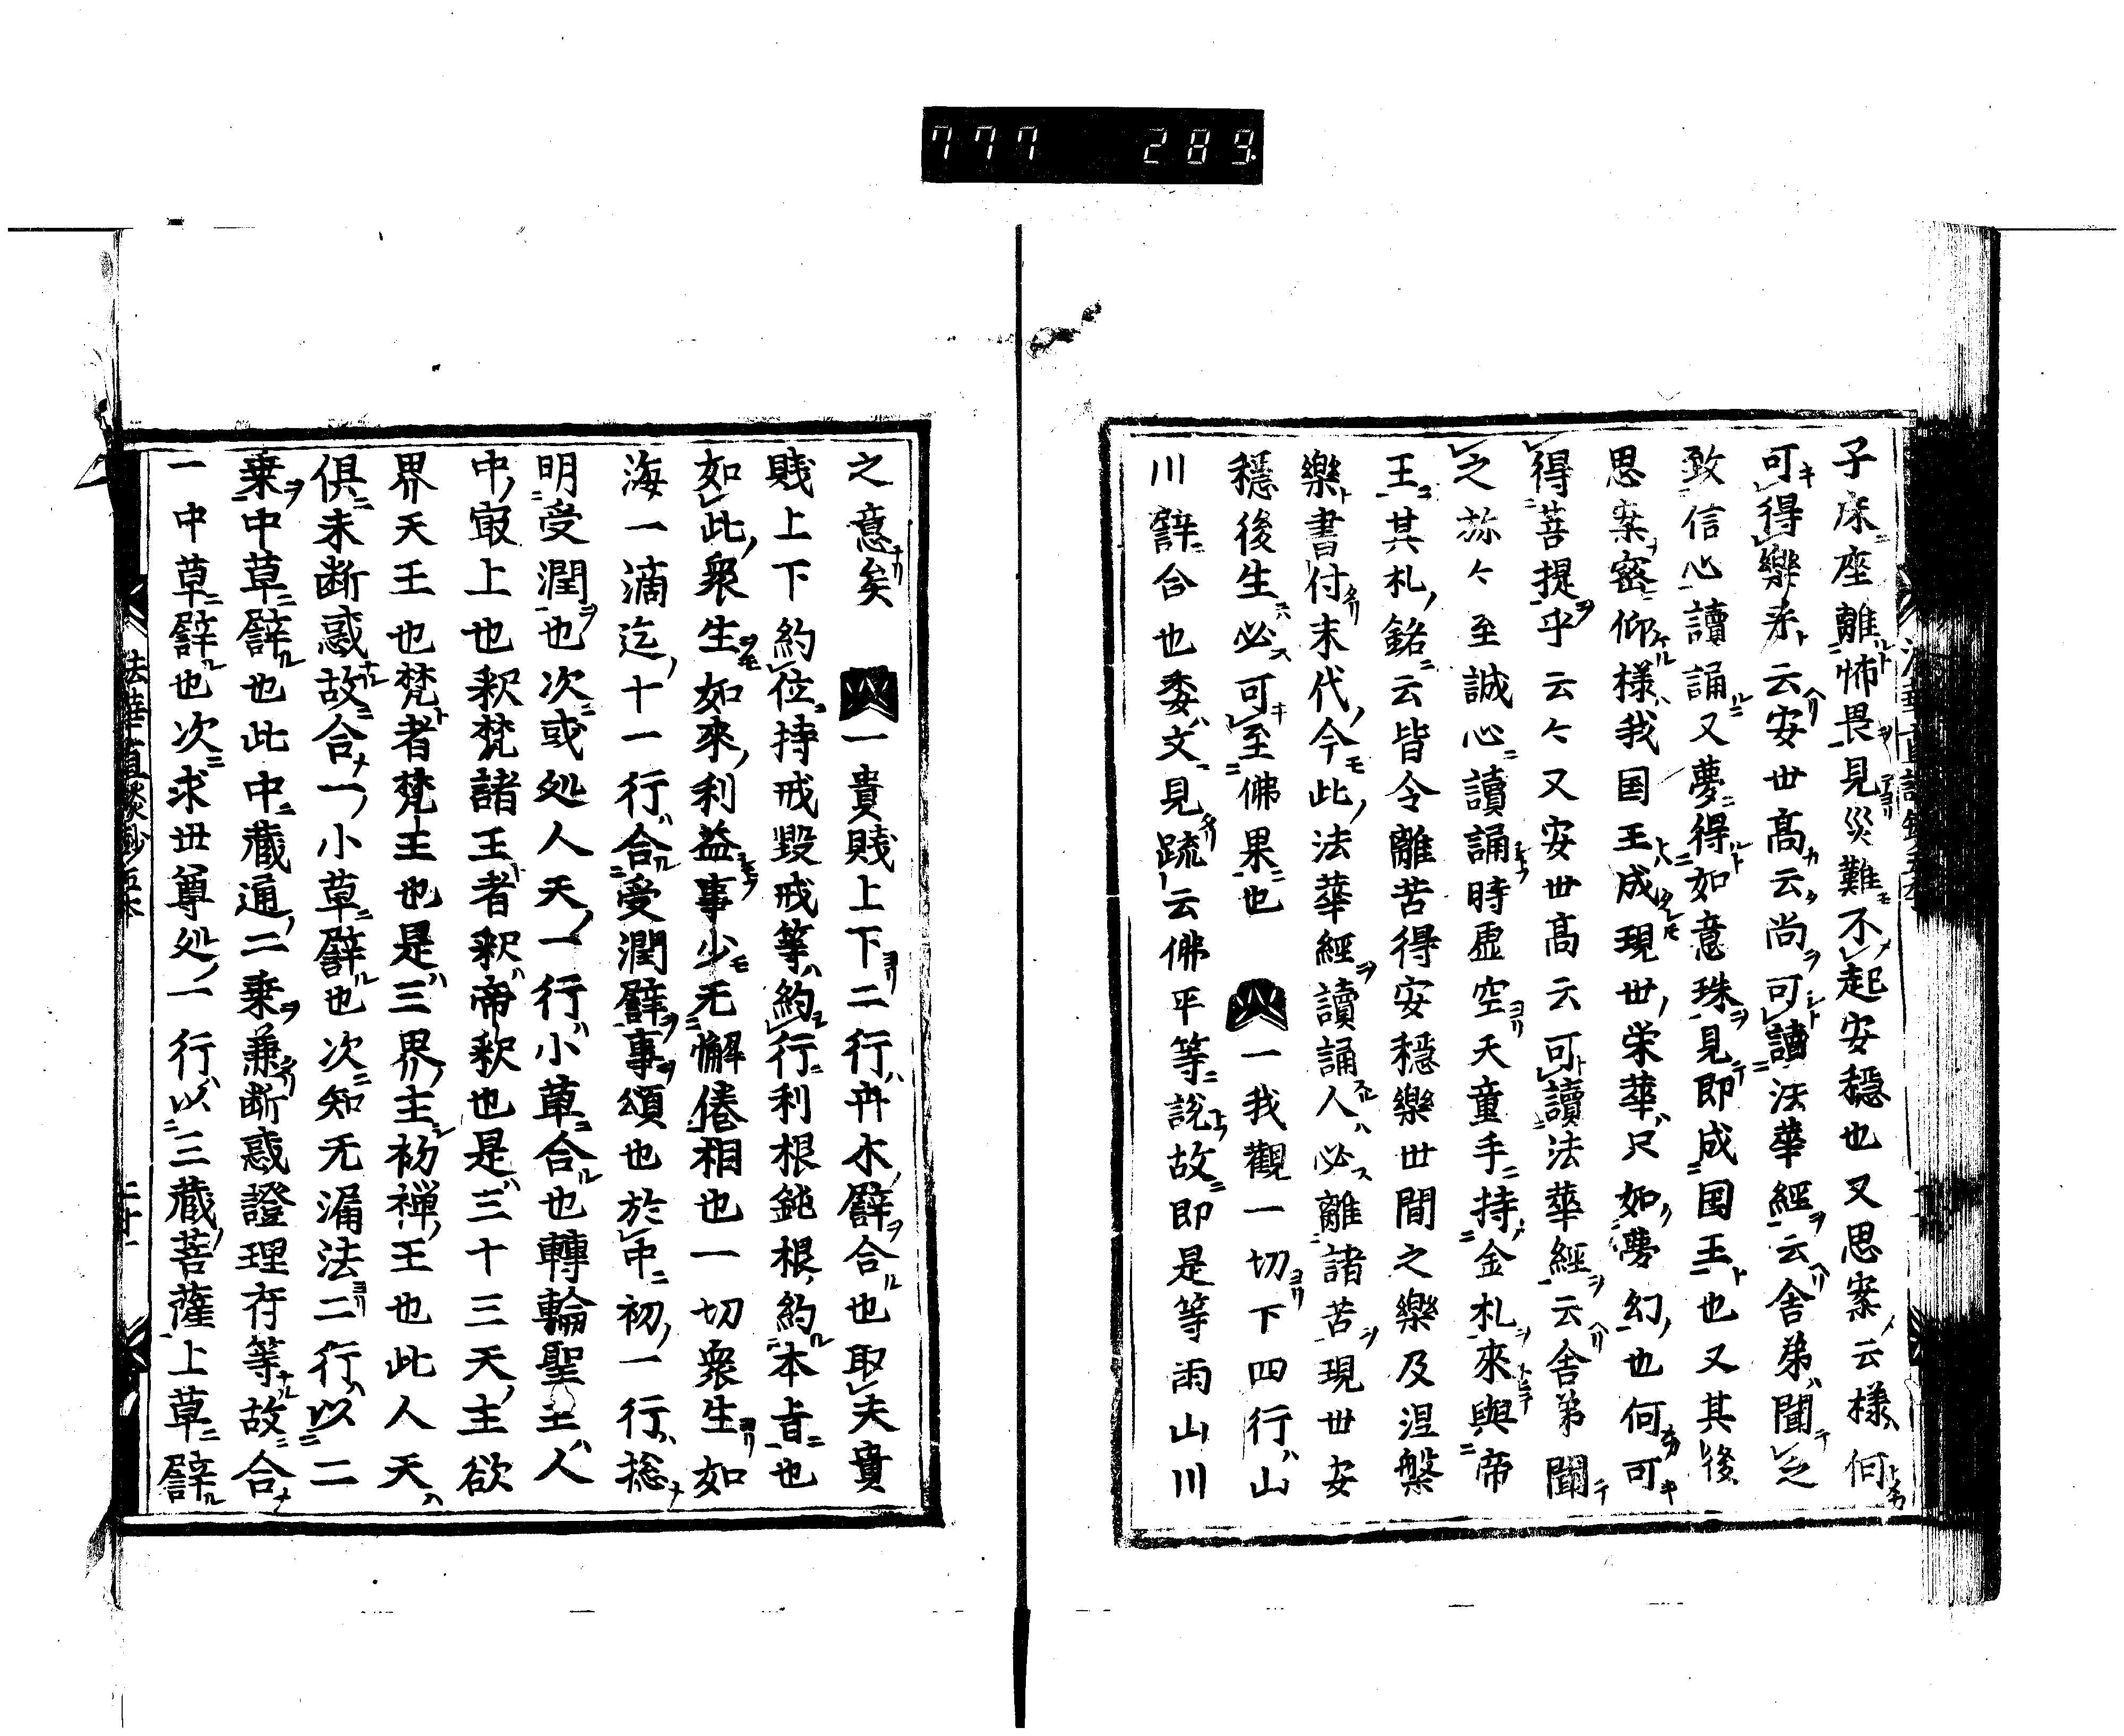 777 289
子床座離怖畏見災難不起安穏也又思案云様何
可得樂系云安世髙云尚可讀法華經云舎弟聞之
致信心讀誦又夢得如意珠見即成国王也又其後
思案密仰様我国王成現世栄華只如夢幻也何可
得菩提乎云々又安世髙云可讀法華經云舎弟聞
之弥々至誠心讀誦時虚空天童手持金札來與帝
王其札銘云皆令離苦得安穏樂世間之樂及涅槃
樂書付末代今此法華經讀誦人必離諸苦現世安
穏後生必可至佛果也 一我觀一切下四行山
川譬合也委文見疏云佛平等説故即是等雨山川
之意矣 一貴賤上下二行卉木譬合也取夫貴
賤上下約位持戒毀戒等約行利根鈍根約本旨也
如此衆生如來利益事少无懈倦相也一切衆生如
海一滴迄十一行合受潤譬事頌也於中初一行捴
明受潤也次或処人天一行小草合也轉輪聖王人
中㝡上也釈梵諸王者釈帝釈也是三十三天主欲
界天王也梵者梵主也是三界主初禅王也此人天
倶未断惑故合一小草譬也次知无漏法二行以二
乗中草譬也此中蔵通二乗兼断惑證理苻等故合
一中草譬也次求世尊処一行以三蔵菩薩上草譬
法華直談鈔五本 二十一